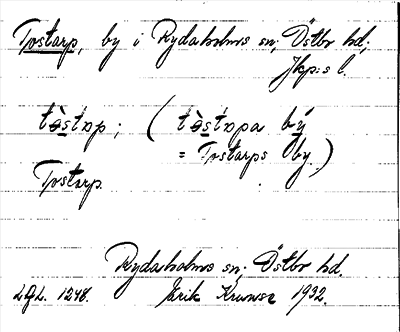 Tostarp, by i Rydaholms sn; Östbo hd;
Jkp:s l.
tò̤stɒp; ( tò̤stɒpa bý
= Tostarps by. )
Tostarp.
Rydaholms sn; Östbo hd.
LGL. 1248. Erik 1932.